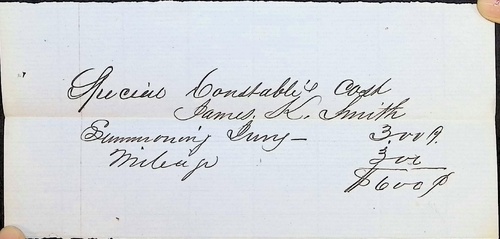 Special Constable's Cost
James K. Smith
Summoning Jury — 3.00
Mileage 3.00
$6.00